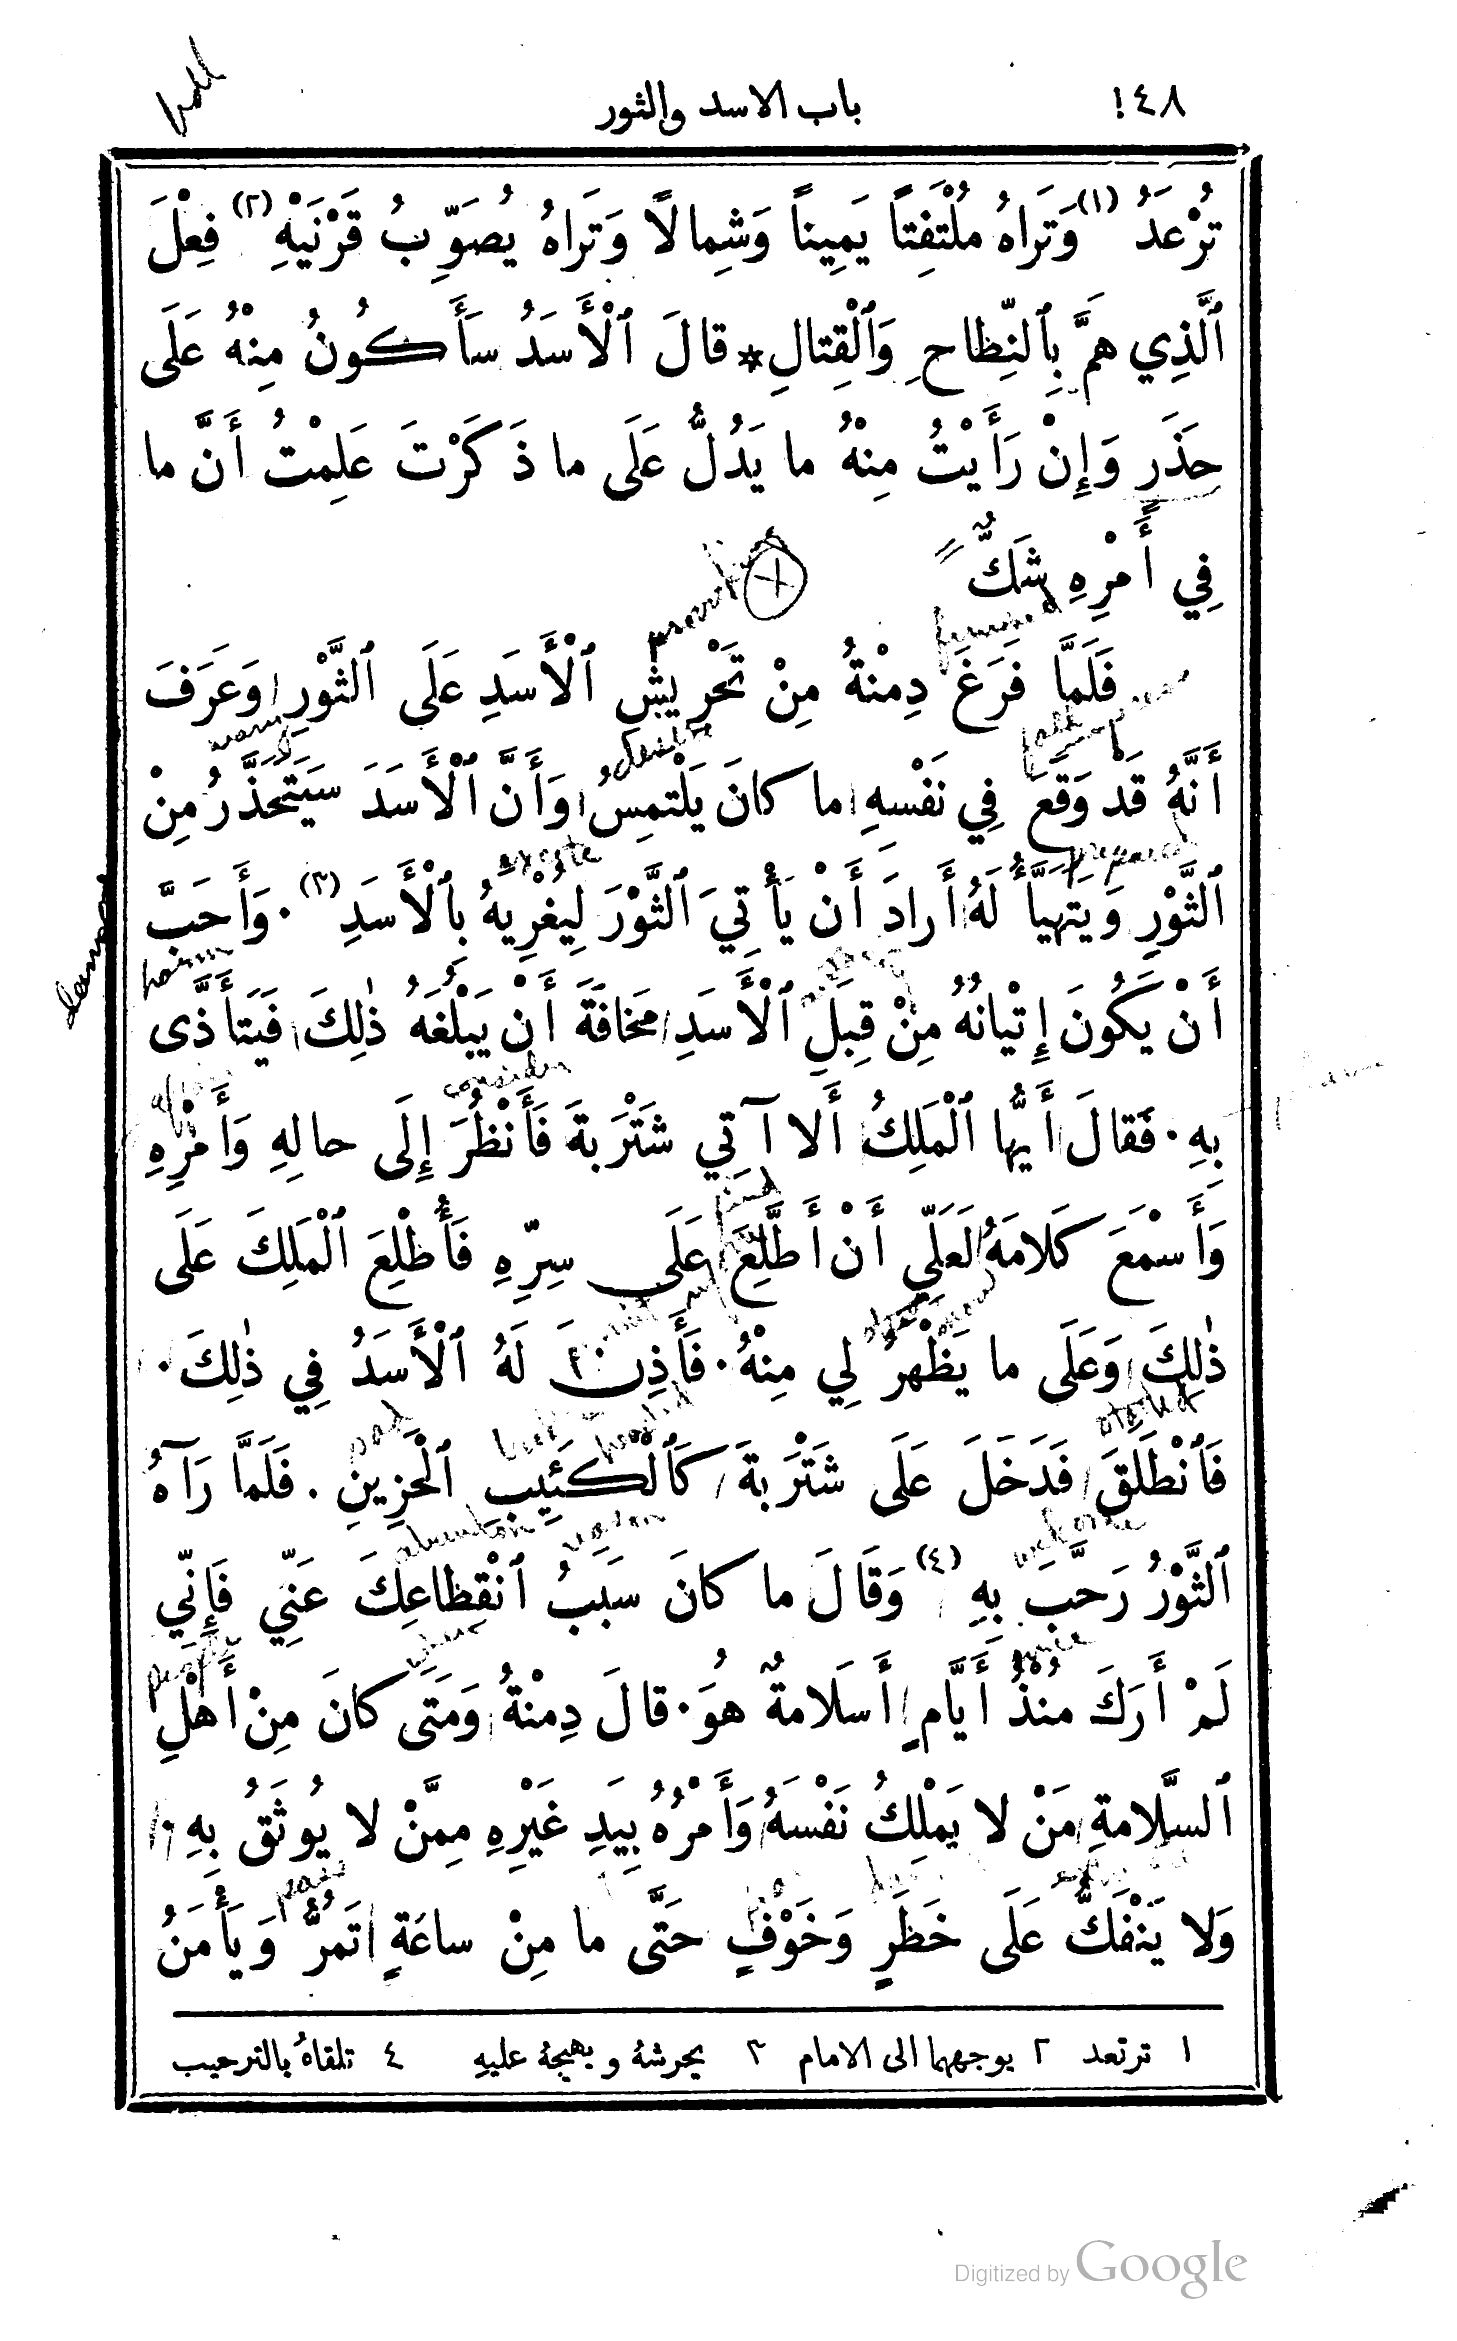 ١٤٨ باب الاسد والثور
تُرْعَدُ (١) وَتَرَاهُ مُلْتَفِتاً يَمِيناً وَشِمالاً وَتَراهُ يُصَوِّبُ قَرْنَيْهِ (٢) فِعْلَ
ٱلَّذِي هَمَّ بِٱلنِّطاحِ وَٱلْقِتالِ* قالَ ٱلْأَسَدُ سأَكُونُ مِنْهُ عَلَى
حَذَرٍ وَإِنْ رَأَيْتُ مِنْهُ ما يَدُلُّ عَلَى ما ذَكَرْتَ عَلِمْتُ أَنَّ ما
فِي أَمْرِهِ شَكٌّ
فَلَمَّا فَرَغَ دِمْنَةُ مِنْ تَحْرِيشِ ٱلْأَسَدِ عَلَى ٱلثَّوْرِ وَعَرَفَ
أَنَّهُ قَدْ وَقَعَ فِي نَفْسِهِ ما كانَ يَلْتَمِسُ وَأَنَّ ٱلْأَسَدَ سَيَتَحَذَّرُ مِنْ
ٱلثَّوْرِ وَيَتَهَيَّأُ لَهُ أَرادَ أَنْ يَأْتِيَ ٱلثَّوْرَ لِيُغْرِيَهُ بِٱلْأَسَدِ (٣). وَأَحَبَّ
أَنْ يَكُونَ إِتْيانُهُ مِنْ قِبَلِ ٱلْأَسَدِ مَخافَةَ أَنْ يَبْلُغَهُ ذٰلِكَ فَيَتَأَذَّى
بِهِ. فَقالَ أَيُّها ٱلْمَلِكُ أَلا آتِي شَتْرَبَةَ فَأَنْظُرَ إِلَى حالِهِ وَأَمْرِهِ
وَأَسْمَعَ كَلامَهُ لَعَلِّي أَنْ أَطَّلِعَ عَلَى سِرِّهِ فَأُطْلِعَ ٱلْمَلِكَ عَلَى
ذٰلِكَ وَعَلَى ما يَظْهَرُ لِي مِنْهُ. فَأَذِنَ لَهُ ٱلْأَسَدُ فِي ذٰلِكَ.
فَٱنْطَلَقَ فَدَخَلَ عَلَى شَتْرَبَةَ كَٱلْكَئِيبِ ٱلْحَزِينِ. فَلَمَّا رَآهُ
ٱلثَّوْرُ رَحَّبَ بِهِ (٤) وَقَالَ ما كانَ سَبَبُ ٱنْقِطاعِكَ عَنِّي فَإِنِّي
لَمْ أَرَكَ مُنْذُ أَيَّامٍ أَسَلامةٌ هُوَ. قالَ دِمْنَةُ وَمَتَى كانَ مِنْ أَهْلِ
ٱلسَّلامةِ مَنْ لا يَمْلِكُ نَفْسَهُ وَأَمْرُهُ بِيَدِ غَيْرِهِ مِمَّنْ لا يُوثَقُ بِهِ.
وَلا يَنْفَكُّ عَلَى خَطَرٍ وَخَوْفٍ حَتَّى ما مِنْ ساعَةٍ تَمُرُّ وَيَأْمَنُ
١ ترتعد ٢ يوجههما الى الامام ٣ يحرشهُ ويهيجهُ عليهِ ٤ تلقاهُ بالترحيب
finished
fall
warn
desire
prepared
excite
harm
damage
consider
started
welcome
reason
since
when
people
pass
Digitized by Google